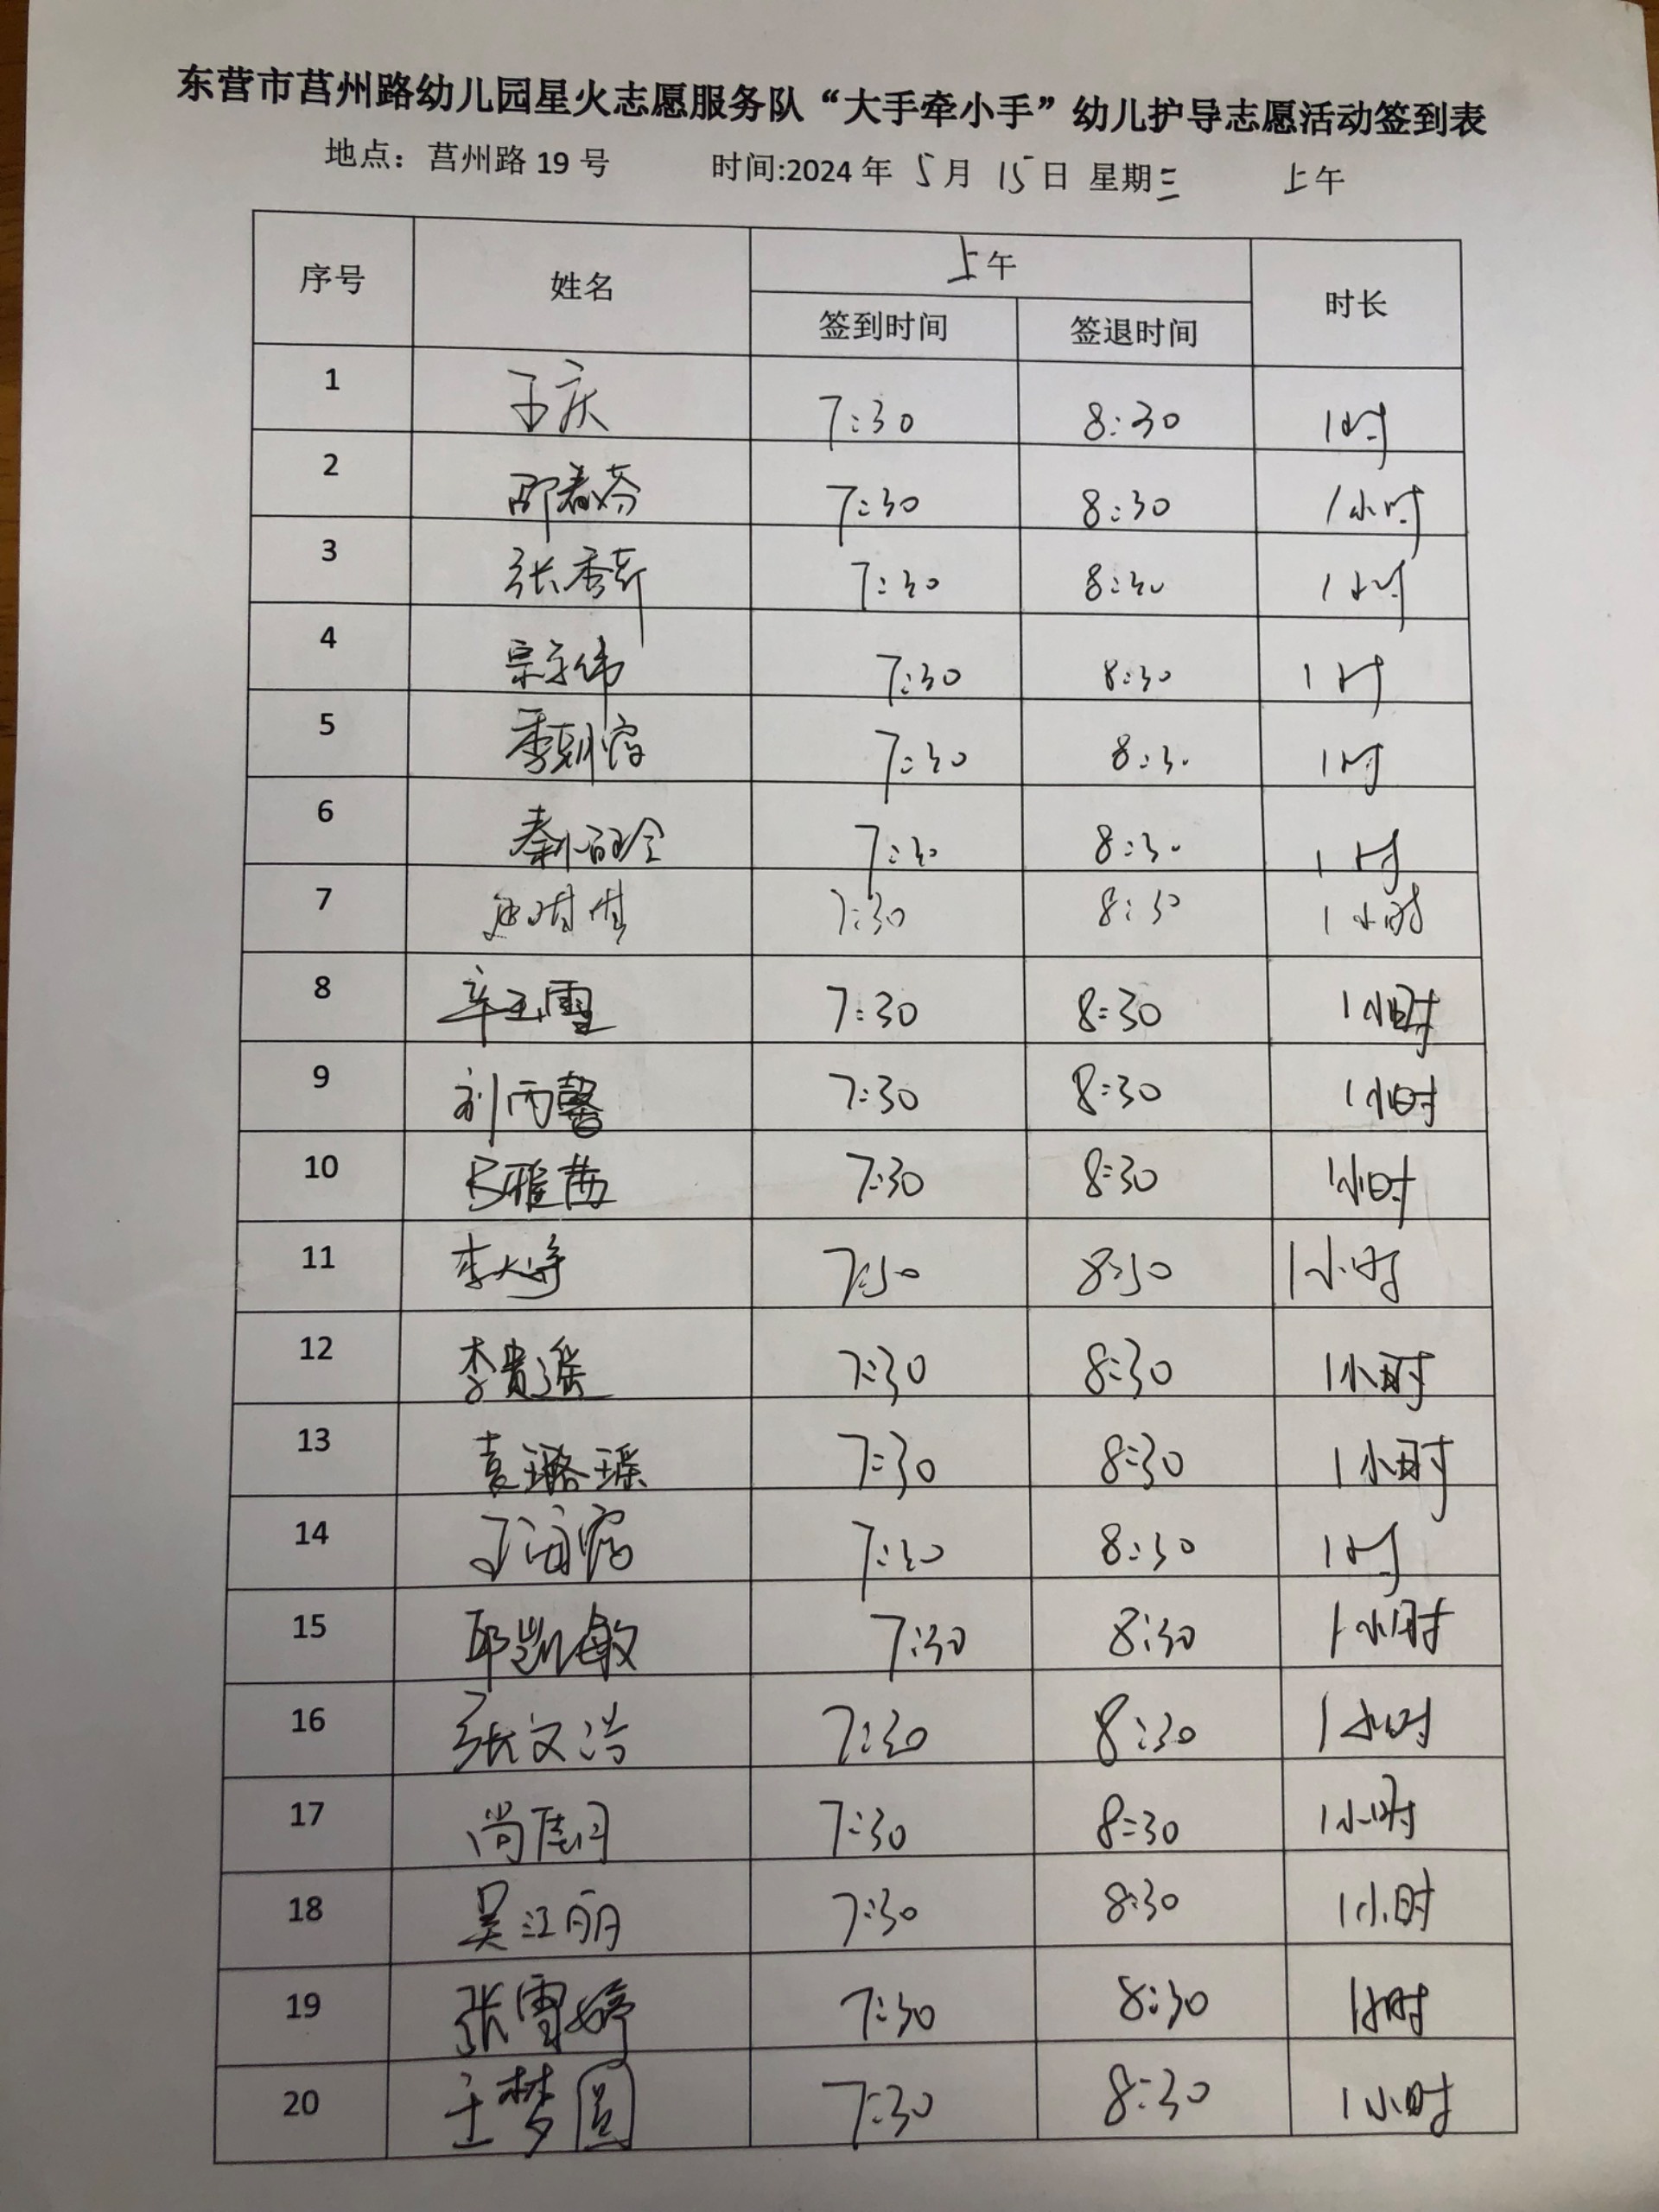 东营市莒州路幼儿园星火志愿服务队“大手牵小手”幼儿护导志愿活动签到表
地点：莒州路 19 号 时间:2024 年 5 月 15 日 星期三 上午
序号 姓名 上午 时长
签到时间 签退时间
1 7:30 8:30 1时
2 邵春芬 7:30 8:30 1小时
3 张秀 7:30 8:30 1小时
4 宗 伟 7:30 8:30 1时
5 季 7:30 8:30 1时
6 秦 7:30 8:30 1时
7 7:30 8:30 1小时
8 辛玉雪 7:30 8:30 1小时
9 刘丙馨 7:30 8:30 1小时
10 雅茜 7:30 8:30 1小时
11 李 7:30 8:30 1小时
12 李贵瑶 7:30 8:30 1小时
13 袁璐瑶 7:30 8:30 1小时
14 7:30 8:30 1时
15 邱凯敏 7:30 8:30 1小时
16 张文浩 7:30 8:30 1小时
17 尚 月 7:30 8:30 1小时
18 吴江丽 7:30 8:30 1小时
19 张雪婷 7:30 8:30 1小时
20 王梦圆 7:30 8:30 1小时